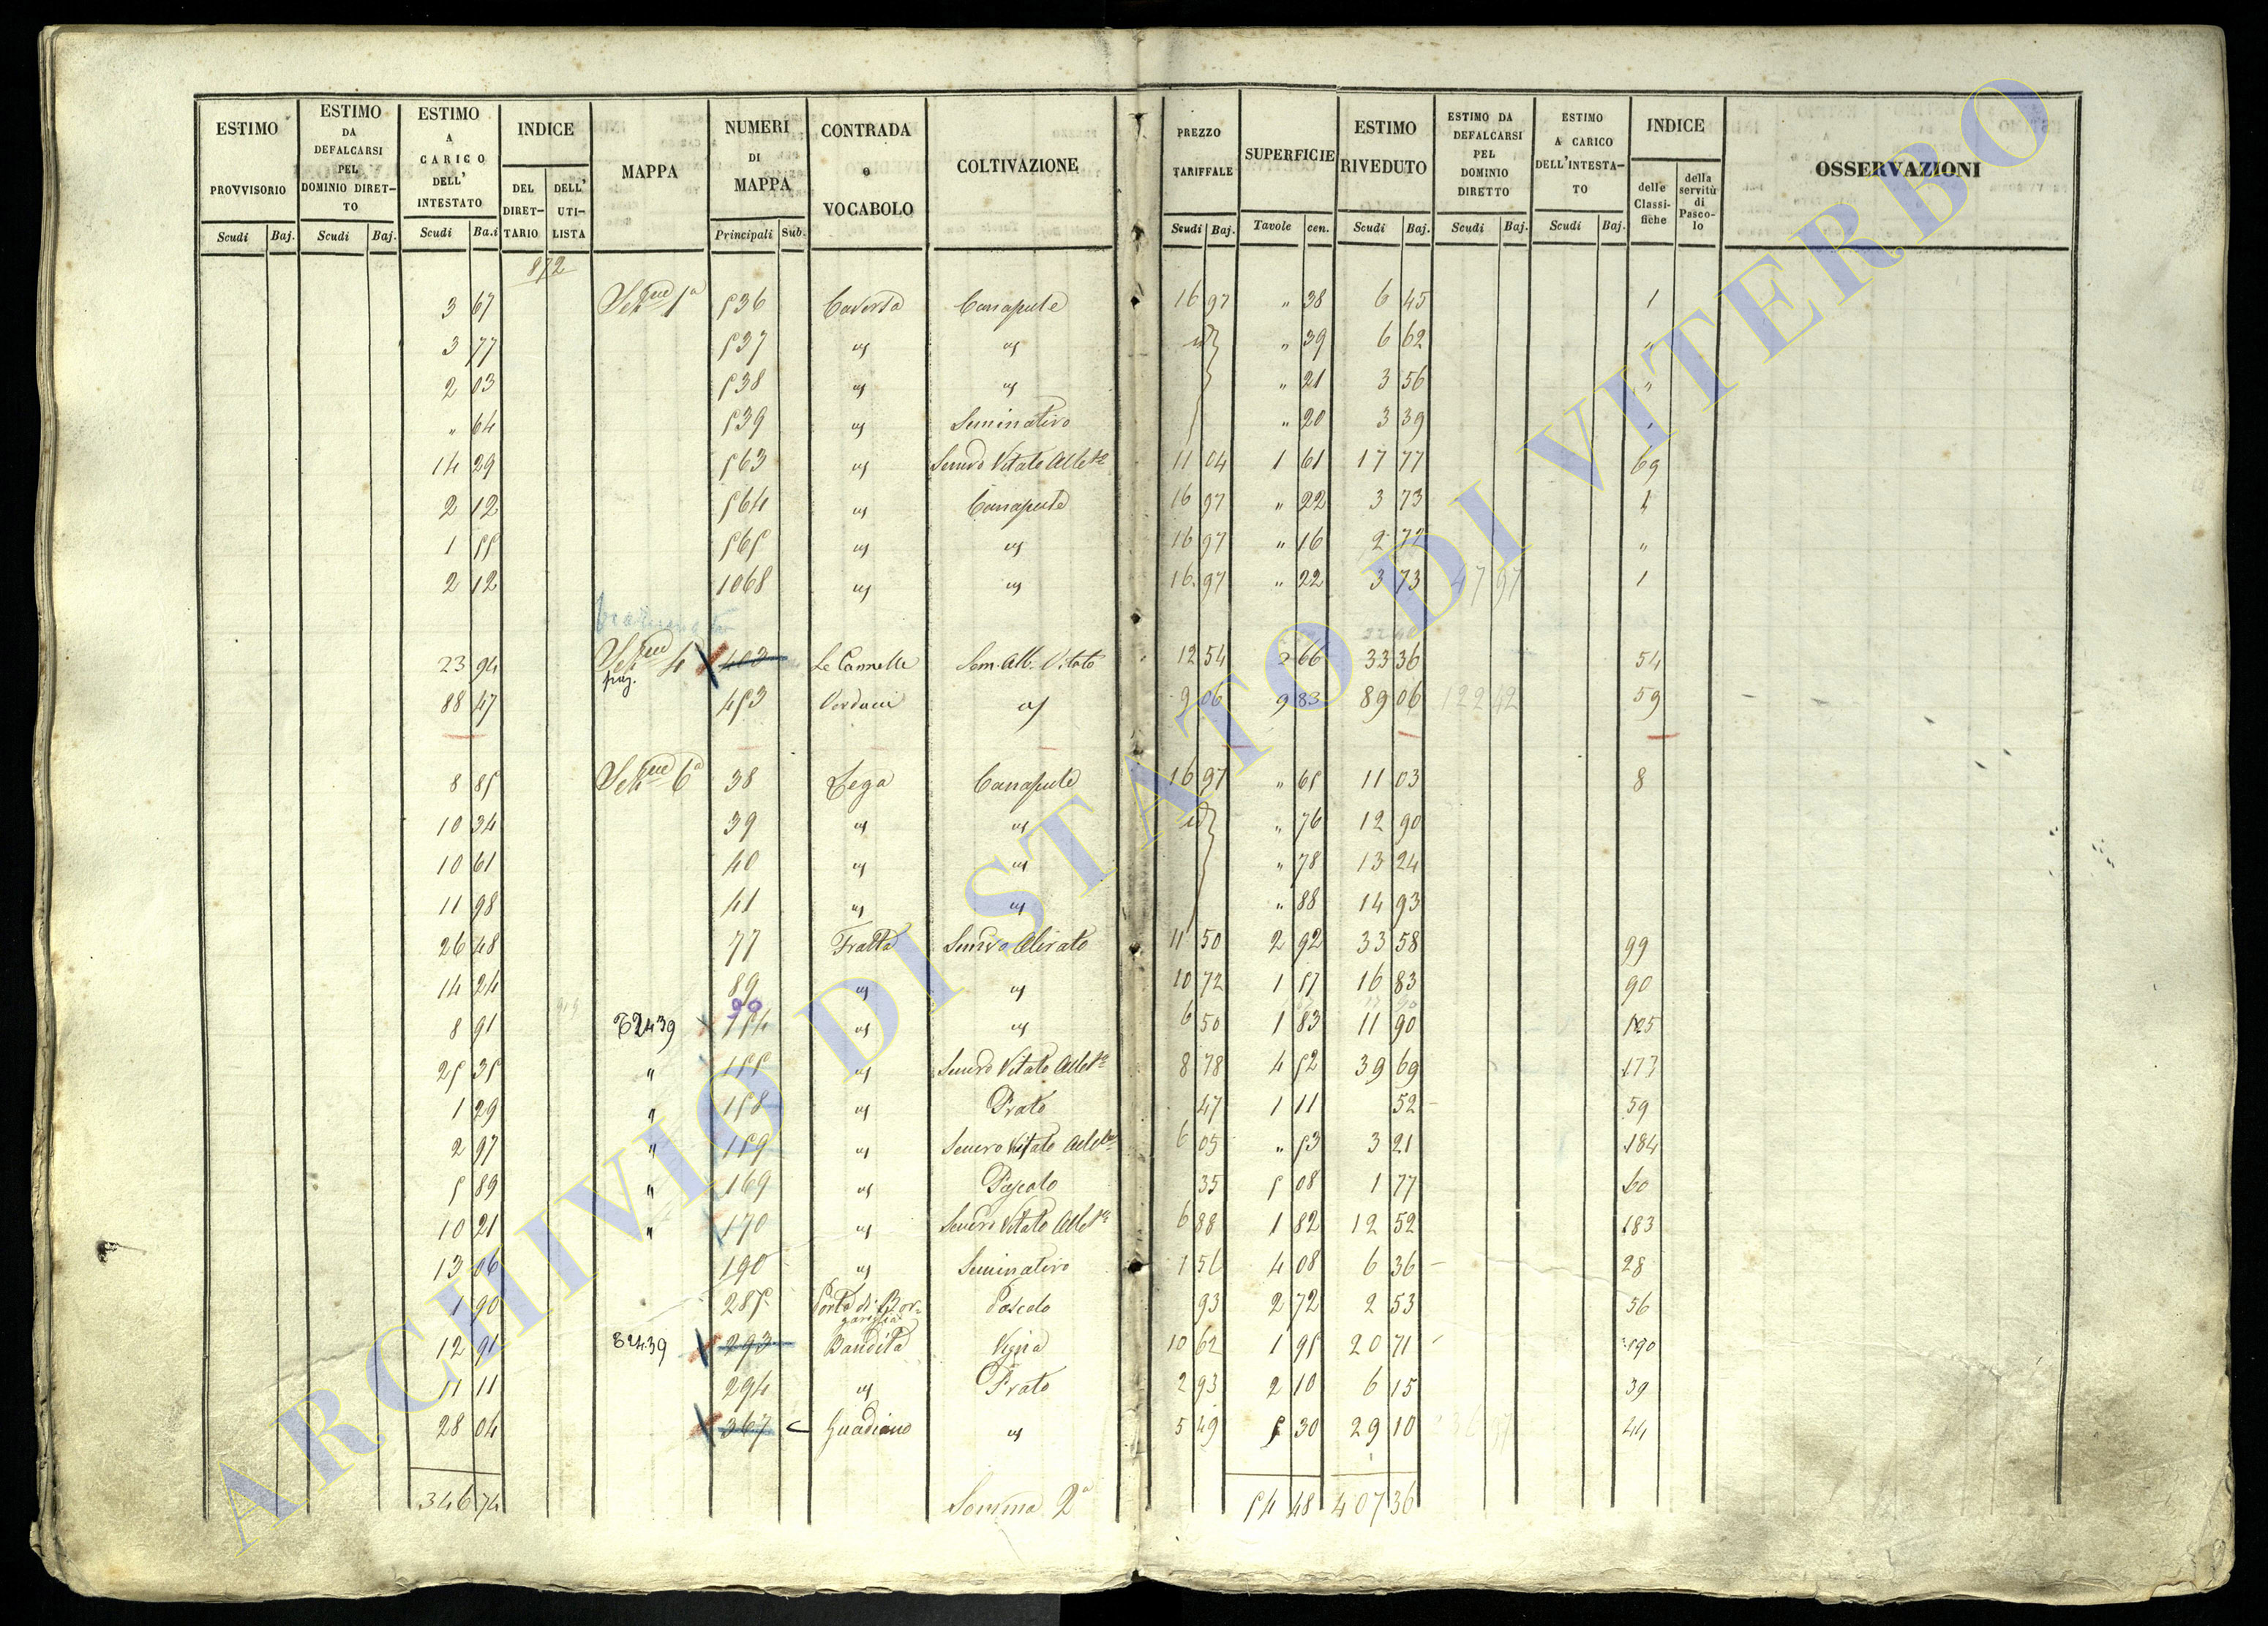 ESTIMO PROVVISORIO | ESTIMO DA DEFALCARSI PEL DOMINIO DIRETTO | ESTIMO A CARICO DELL' INTESTATO | INDICE | MAPPA | NUMERI DI MAPPA | CONTRADA o VOCABOLO | COLTIVAZIONE | PREZZO TARIFFALE | SUPERFICIE | ESTIMO RIVEDUTO | ESTIMO DA DEFALCARSI PEL DOMINIO DIRETTO | ESTIMO A CARICO DELL'INTESTA-TO | INDICE | OSSERVAZIONI
DEL DIRET-TARIO | DELL' UTI-LISTA | delle Classi-fiche | della servitù di Pasco-lo
Scudi | Baj. | Scudi | Baj. | Scudi | Ba.i | Principali | Sub. | Scudi | Baj. | Tavole | cen. | Scudi | Baj. | Scudi | Baj. | Scudi | Baj.
872
3 67 536 Caverta Canapule 16 97 " 38 6 45 1
3 77 537 " " " 39 6 62 "
2 03 538 " " " 21 3 56 "
" 64 539 " Seminativo " 20 3 39
14 29 563 " 11 04 1 61 17 77 69
2 12 564 " Canapule 16 97 " 22 3 73 1
1 55 565 " " 16 97 " 16 2 72 "
2 12 1068 " " 16 97 " 22 3 73 47 97 1
23 94 4 403 Le Cannelle Sem. Alb. Vitato 12 54 2 66 33 36 54
88 47 453 9 06 9 83 89 06 122 42 59
8 85 6a 38 Canapule 16 97 " 65 11 03 8
10 34 39 " " " 76 12 90
10 61 40 " " " 78 13 24
11 98 41 " " " 88 14 93
26 48 77 Fratta 11 50 2 92 33 58 99
14 24 89 " " 10 72 1 57 16 83 90
90
8 91 2439 154 " " 6 50 1 83 11 90 125
25 35 " 155 " 8 78 4 52 39 69 173
1 29 " 158 " Prato 47 1 11 52 59
2 97 " 159 " 6 05 " 53 3 21 184
5 89 " 169 " Pascolo 35 5 08 1 77 60
10 21 " 170 " 6 88 1 82 12 52 183
13 06 190 " Seminativo 1 56 4 08 6 36 28
1 90 285 Pascolo 93 2 72 2 53 56
12 91 2439 293 Bandita Vigna 10 62 1 95 20 71 190
11 11 294 " Prato 2 93 2 10 6 15 39
28 04 367 Guadiano " 5 49 5 30 29 10 44
346 74 Somma 2a 54 48 407 36
ARCHIVIO DI STATO DI VITERBO